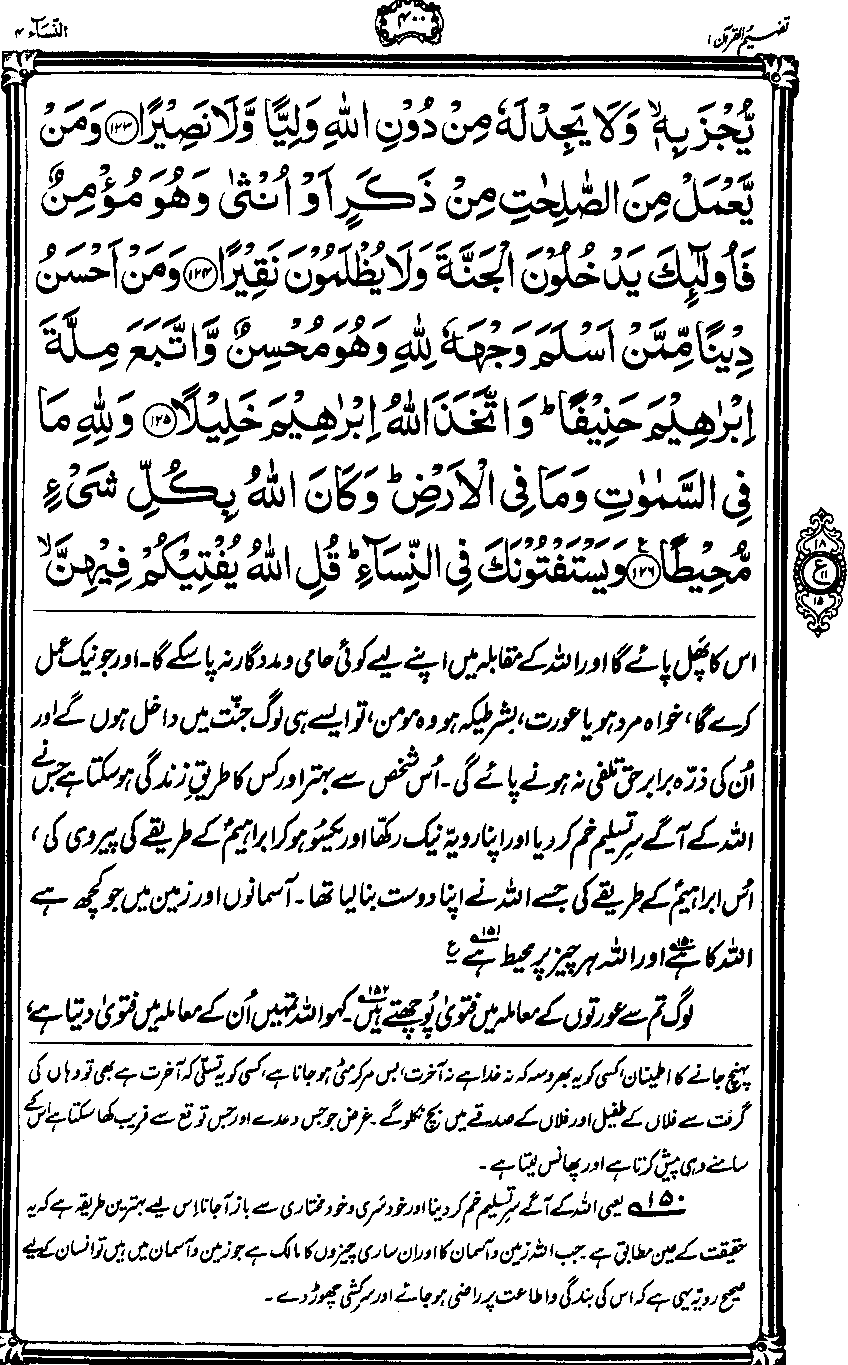 تفہیم القرآن ۱
۴۰۰
النّسآء ۴
يُّجْزَ بِهٖۙ وَلَا يَجِدْ لَهٗ مِنْ دُوْنِ اللّٰهِ وَلِيًّا وَّلَا نَصِيْرًا ﴿۱۲۳﴾ وَمَنْ
يَّعْمَلْ مِنَ الصّٰلِحٰتِ مِنْ ذَكَرٍ اَوْ اُنْثٰى وَهُوَ مُؤْمِنٌ
فَاُولٰٓئِكَ يَدْخُلُوْنَ الْجَنَّةَ وَلَا يُظْلَمُوْنَ نَقِيْرًا ﴿۱۲۴﴾ وَمَنْ اَحْسَنُ
دِيْنًا مِّمَّنْ اَسْلَمَ وَجْهَهٗ لِلّٰهِ وَهُوَ مُحْسِنٌ وَّاتَّبَعَ مِلَّةَ
اِبْرٰهِيْمَ حَنِيْفًاؕ وَاتَّخَذَ اللّٰهُ اِبْرٰهِيْمَ خَلِيْلًا ﴿۱۲۵﴾ وَلِلّٰهِ مَا
فِى السَّمٰوٰتِ وَمَا فِى الْاَرْضِؕ وَكَانَ اللّٰهُ بِكُلِّ شَىْءٍ
مُّحِيْطًا ﴿۱۲۶﴾ وَيَسْتَفْتُوْنَكَ فِى النِّسَآءِؕ قُلِ اللّٰهُ يُفْتِيْكُمْ فِيْهِنَّۙ
۱۸
ع
۱۱
۱۵
اس کا پھل پائے گا اور اللہ کے مقابلہ میں اپنے لیے کوئی حامی و مددگار نہ پا سکے گا۔ اور جو نیک عمل
کرے گا، خواہ مرد ہو یا عورت، بشرطیکہ ہو وہ مومن، تو ایسے ہی لوگ جنّت میں داخل ہوں گے اور
اُن کی ذرّہ برابر حق تلفی نہ ہونے پائے گی۔ اُس شخص سے بہتر اور کس کا طریقِ زندگی ہو سکتا ہے جس نے
اللہ کے آگے سرِ تسلیم خم کر دیا اور اپنا رویّہ نیک رکھا اور یکسُو ہو کر ابراہیمؑ کے طریقے کی پیروی کی،
اُس ابراہیمؑ کے طریقے کی جسے اللہ نے اپنا دوست بنا لیا تھا۔ آسمانوں اور زمین میں جو کچھ ہے
اللہ کا ہے۱۵۰ اور اللہ ہر چیز پر محیط ہے۱۵۱ ع
لوگ تم سے عورتوں کے معاملہ میں فتویٰ پُوچھتے ہیں۱۵۲۔ کہو اللہ تمہیں اُن کے معاملہ میں فتویٰ دیتا ہے،
پہنچ جانے کا اطمینان، کسی کو یہ بھروسہ کہ نہ خدا ہے نہ آخرت، بس مر کر مٹی ہو جانا ہے، کسی کو یہ تسلّی کہ آخرت ہے بھی تو وہاں کی
گرفت سے فلاں کے طفیل اور فلاں کے صدقے میں بچ نکلو گے۔ غرض جو جس وعدے اور جس توقع سے فریب کھا سکتا ہے اُس کے
سامنے وہی پیش کرتا ہے اور پھانس لیتا ہے۔
۱۵۰ یعنی اللہ کے آگے سرِ تسلیم خم کر دینا اور خود سَری و خود مختاری سے باز آ جانا اِس لیے بہترین طریقہ ہے کہ یہ
حقیقت کے عین مطابق ہے۔ جب اللہ زمین و آسمان کا اور ان ساری چیزوں کا مالک ہے جو زمین و آسمان میں ہیں تو انسان کے لیے
صحیح رویّہ یہی ہے کہ اس کی بندگی و اطاعت پر راضی ہو جائے اور سرکشی چھوڑ دے۔